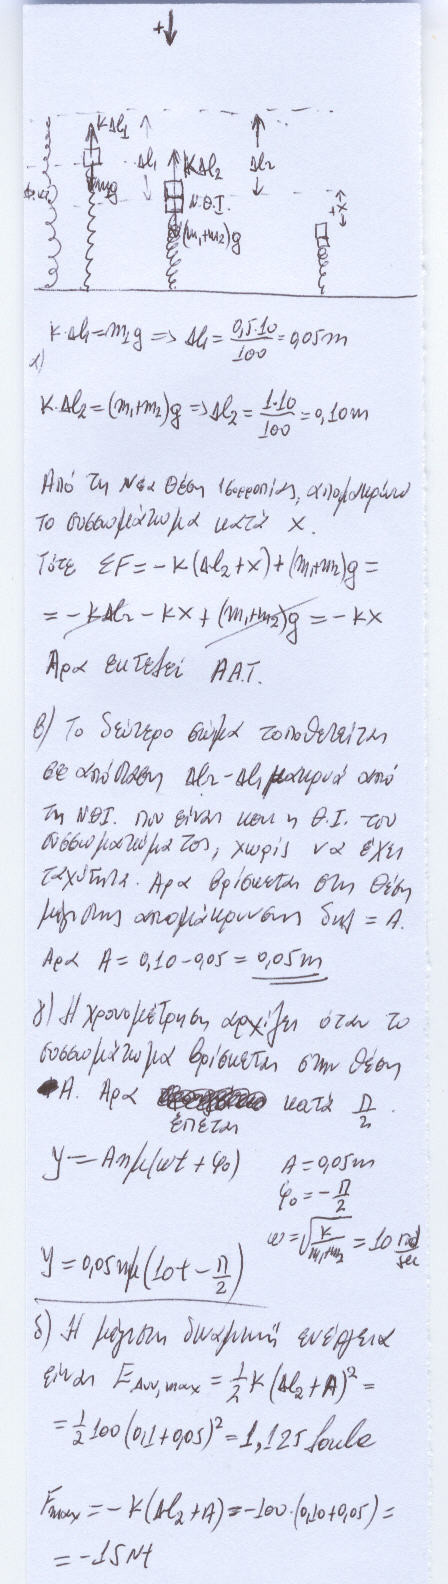 +↓
KΔl1
Δl1
KΔl2
Δl2
Φ.Μ.
m1g
Ν.Θ.Ι.
(m1+m2)g
+x
α) K·Δl1=m1g => Δl1=0,5·10/100=0,05m
K·Δl2=(m1+m2)g =>Δl2=1·10/100=0,10m
Από τη Νέα θέση ισορροπίας, απομακρύνω
το συσσωμάτωμα κατά x.
Τότε ΣF=-K(Δl2+x)+(m1+m2)g=
=-KΔl2-Kx+(m1+m2)g=-Kx
Άρα εκτελεί Α.Α.Τ.
β) Το δεύτερο σώμα τοποθετείται
σε απόσταση Δl2-Δl1 μακρυά από
τη ΝΘΙ. που είναι και η Θ.Ι. του
συσσωματώματος, χωρίς να έχει
ταχύτητα. Άρα βρίσκεται στη θέση
μέγιστης απομάκρυνσης δηλ = A.
Άρα A=0,10-0,05=0,05m
γ) Η χρονομέτρηση αρχίζει όταν το
συσσωμάτωμα βρίσκεται στην θέση
-A. Άρα έπεται κατά π/2.
y=Aημ(ωt+φ0) A=0,05m
φ0=-π/2
ω=√(K/(m1+m2))=10 rad/sec
y=0,05ημ(10t-π/2)
δ) Η μέγιστη δυναμική ενέργεια
είναι EΔυν,max=1/2K(Δl2+A)²=
=1/2 100(0,1+0,05)²=1,125 Joule
Fmax=-K(Δl2+A)=-100·(0,10+0,05)=
=-15Nt